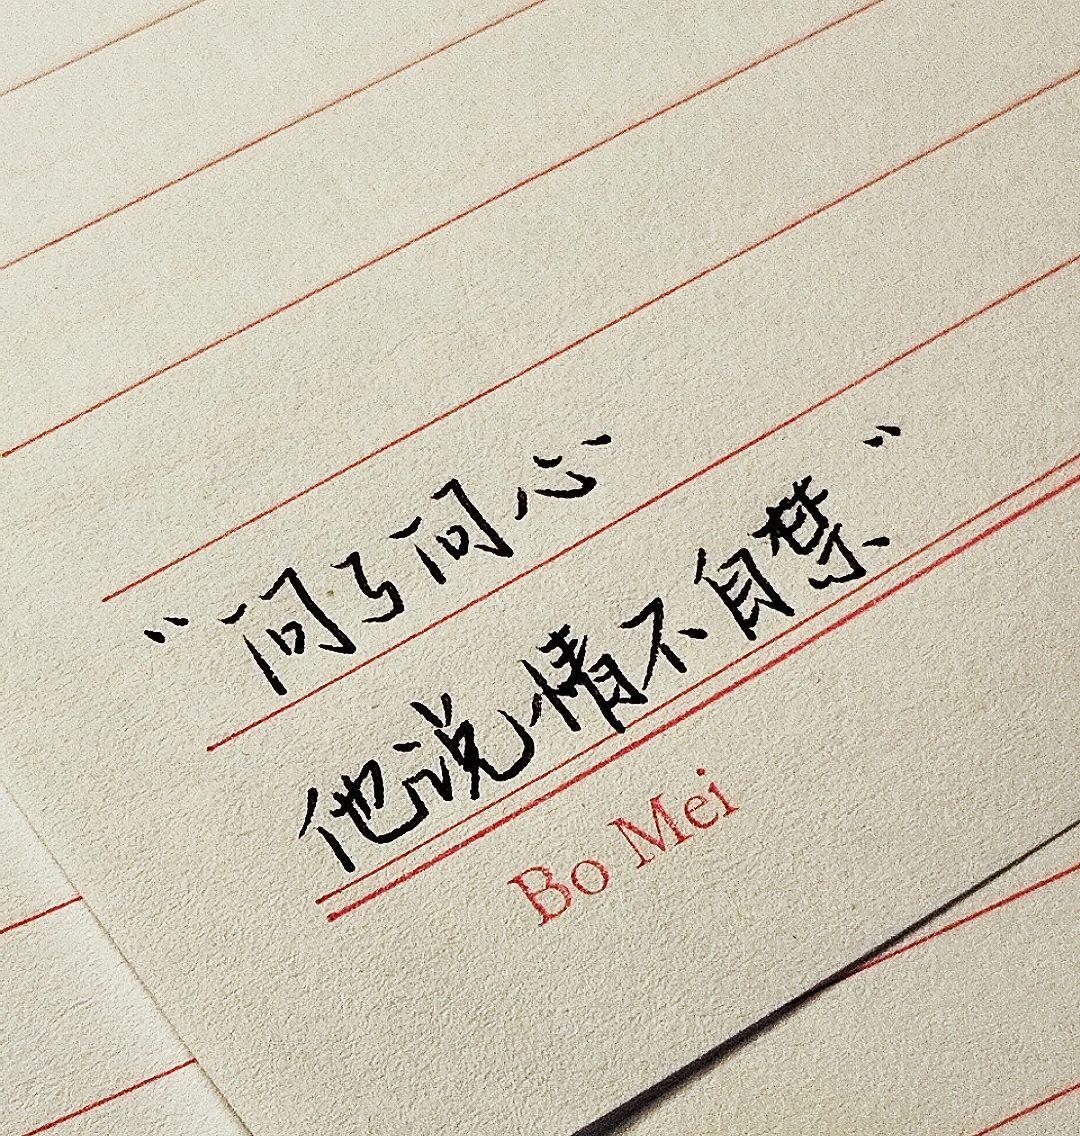 “问了问心
他说情不自禁”
Bo Mei